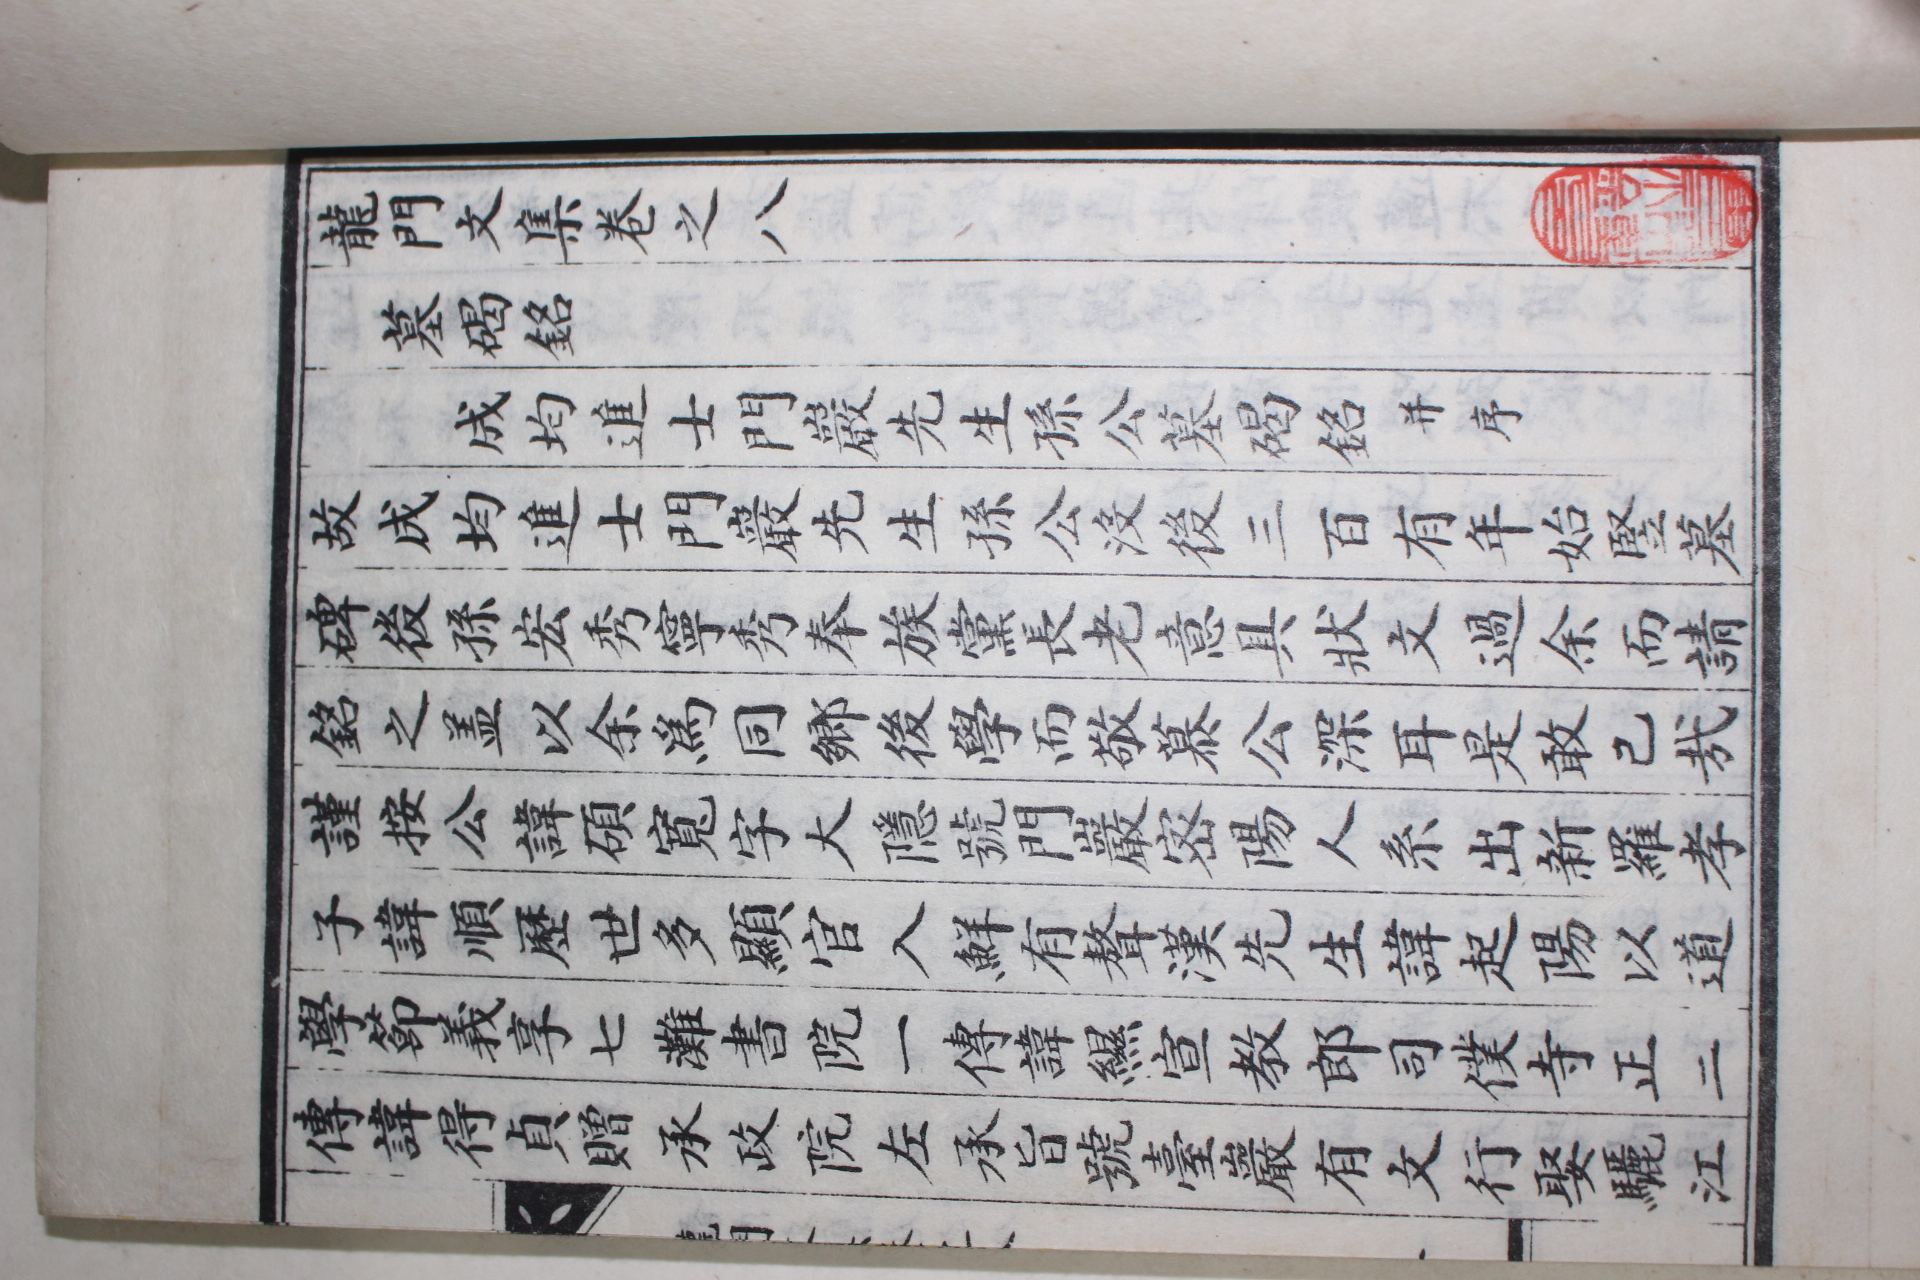 龍門文集卷之八
墓碣銘
成均進士門巖先生孫公墓碣銘 并序
故成均進士門巖先生孫公沒後三百有年始竪墓
碑後孫宏秀寧秀奉族黨長老意具狀文過余而請
銘之盖以余爲同鄉後學而敬慕公深耳是敢已哉
謹按公諱碩寬字大隱號門巖密陽人系出新羅孝
子諱順歷世多顯官入鮮有聱漢先生諱起陽以道
學節義享七灘書院一傳諱縜宣教郎司僕寺正二
傳諱得貞贈承政院左承旨號臺巖有文行娶驪江